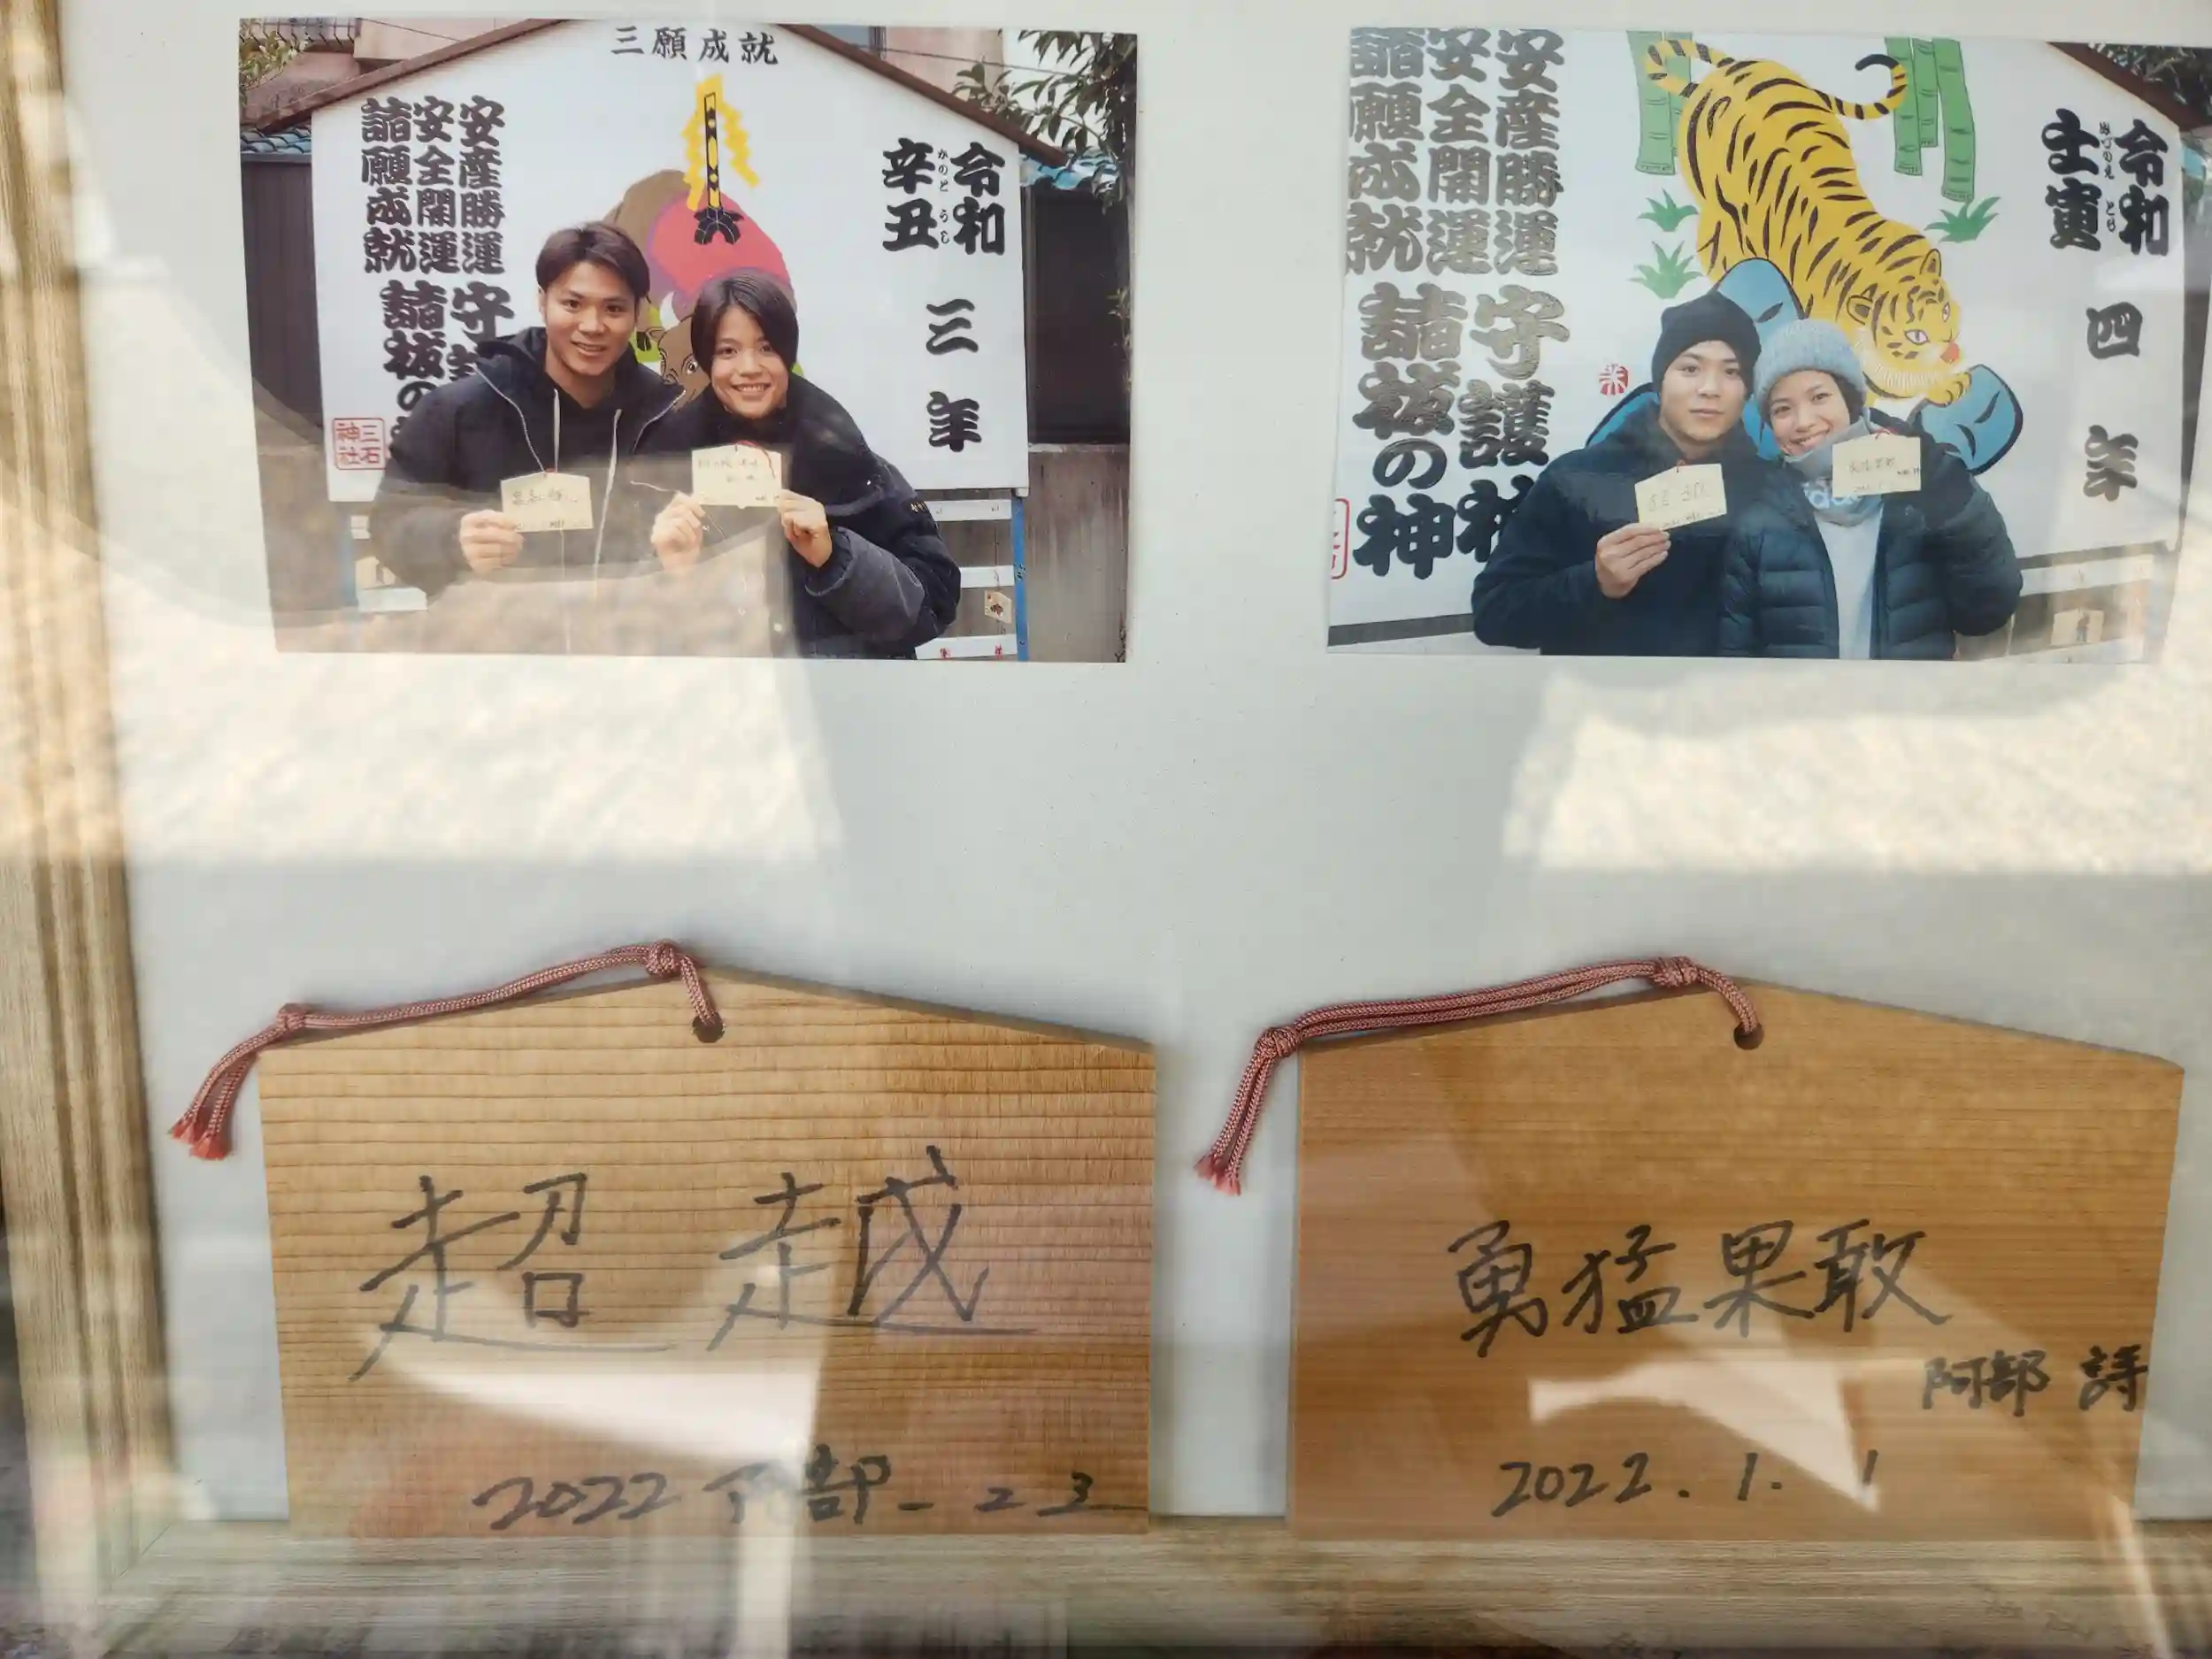 三願成就
令和三年
辛丑
かのとうし
安産勝運
安全開運
諸願成就
守護
諸祓の
三石
神社
令和四年
壬寅
みずのえとら
安産勝運
安全開運
諸願成就
守護神
諸祓の神
超越
2022 阿部一二三
勇猛果敢
阿部 詩
2022.1.1